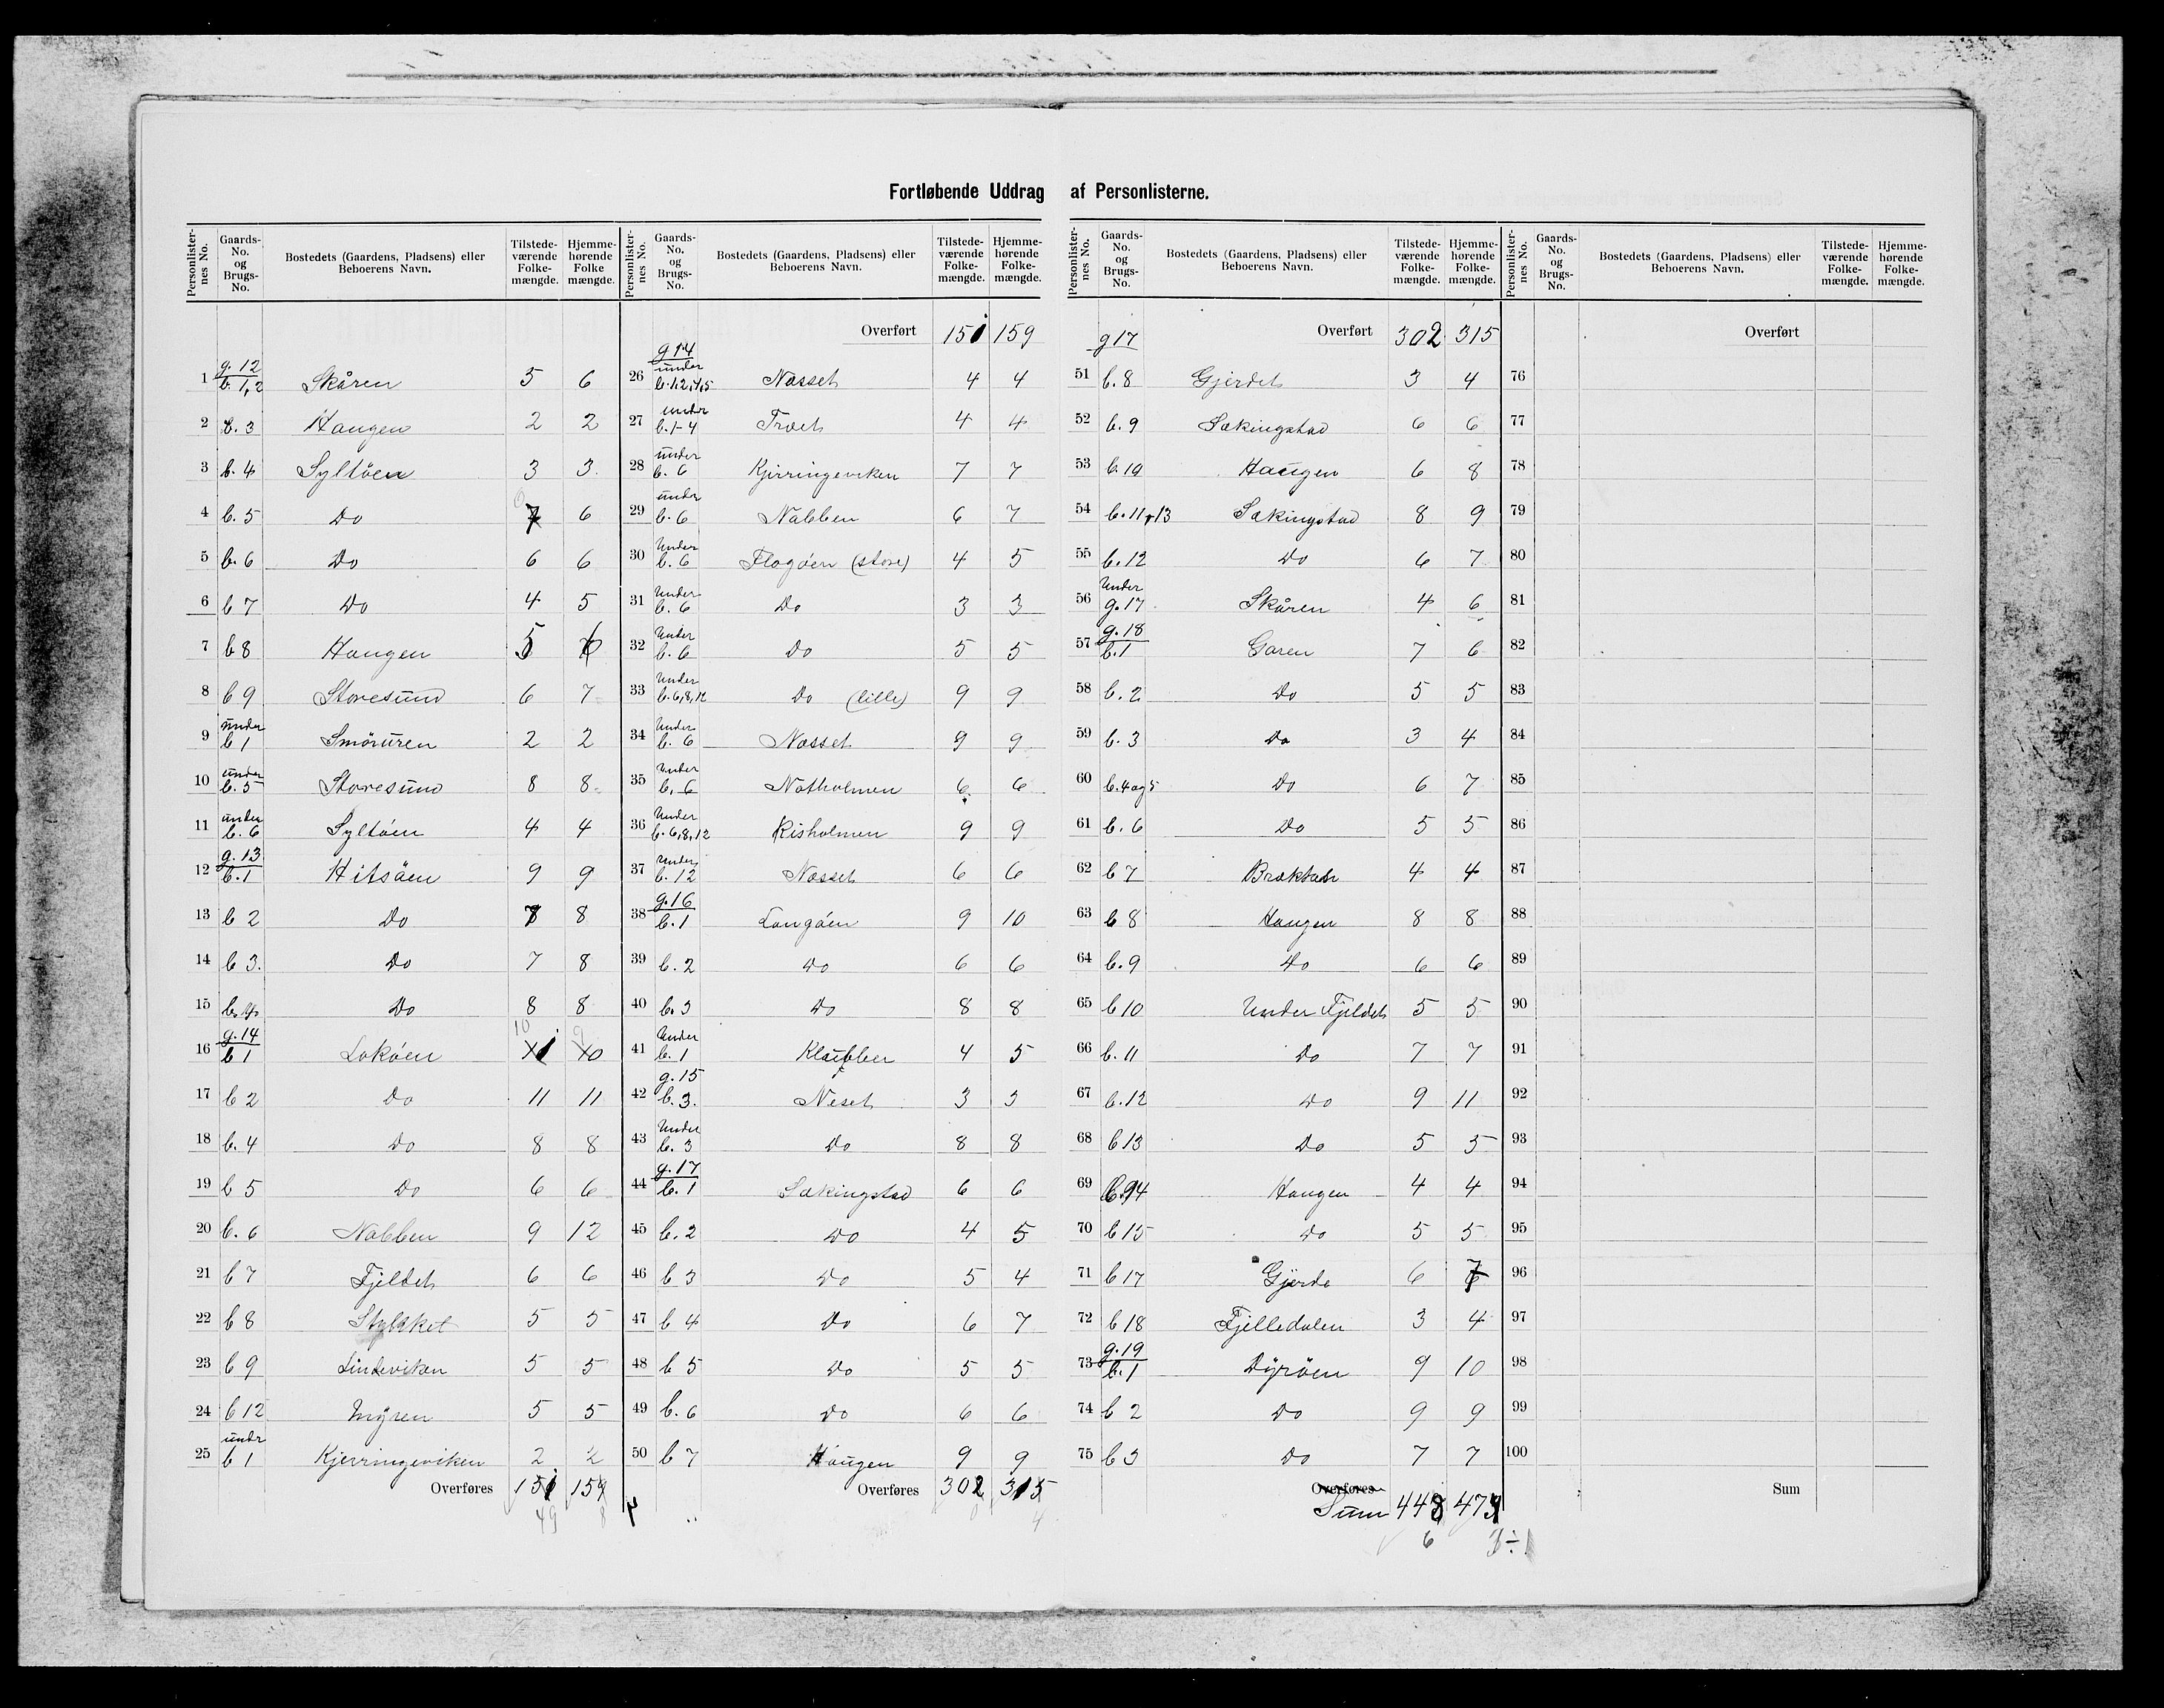 Fortløbende Uddrag af Personlisterne.
Personlister-nes No. Gaards-No. og Brugs-No. Bostedets (Gaardens, Pladsens) eller Beboerens Navn. Tilstede-værende Folke-mængde. Hjemme-hørende Folke mængde.
1 g. 12 b. 1,2 Skåren 5 6
2 b. 3 Haugen 2 2
3 b. 4 Syltöen 3 3
4 b. 5 Do 7 6
5 b. 6 Do 6 6
6 b 7 Do 4 5
7 b 8 Haugen 5 6
8 b 9 Storesund 6 7
9 under b 1 Smöruren 2 2
10 under b. 5 Storesund 8 8
11 under b. 6 Syltöen 4 4
12 g. 13 b. 1 Hitsöen 9 9
13 b 2 Do 7 8
14 b 3. Do 7 8
15 b. 4. Do 8 8
16 g. 14 b 1 Loköen 10 9
17 b 2 Do 11 11
18 b. 4 Do 8 8
19 b 5 Do 6 6
20 b. 6 Nabben 9 12
21 b 7 Fjeldet 6 6
22 b 8 Stykket 5 5
23 b 9 Lindeviken 5 5
24 b 12 Myren 5 5
25 undr b 1 Kjerringeviken 2 2
Overføres 151 159
49 8
Personlister-nes No. Gaards-No. og Brugs-No. Bostedets (Gaardens, Pladsens) eller Beboerens Navn. Tilstede-værende Folke-mængde. Hjemme-hørende Folke-mængde.
Overført 151 159
26 g 14 under b. 1,2,4,5 Nasset 4 4
27 under b. 1-4 Træet 4 4
28 under b. 6 Kjerringeviken 7 7
29 undr b. 6 Nabben 6 7
30 Under b. 6 Flogöen (store) 4 5
31 Under b. 6 Do 3 3
32 Under b. 6 Do 5 5
33 Under b. 6,8,12 Do (lille) 9 9
34 Under b. 6 Nasset 9 9
35 Under b. 6 Notholmen 6 6
36 Under b. 6,8,12 Risholmen 9 9
37 Under b. 12 Nasset 6 6
38 g. 16 b. 1 Langöen 9 10
39 b. 2 Do 6 6
40 b. 3 Do 8 8
41 Under b. 1 Klubben 4 5
42 g. 15 b. 3. Neset 3 3
43 Under b. 3 Do 8 8
44 g. 17 b. 1 Sækingstad 6 6
45 b. 2 Do 4 5
46 b 3 Do 5 4
47 b 4 Do 6 7
48 b 5 Do 5 5
49 b. 6 Do 6 6
50 b 7 Haugen 9 9
Overføres 302 315
0 4
Personlister-nes No. Gaards-No. og Brugs-No. Bostedets (Gaardens, Pladsens) eller Beboerens Navn. Tilstede-værende Folke-mængde. Hjemme-hørende Folke-mængde.
g 17 Overført 302 315
51 b. 8 Gjerdet 3 4
52 b. 9 Sækingstad 6 6
53 b. 10 Haugen 6 8
54 b. 11, 13 Sækingstad 8 9
55 b. 12 Do 6 7
56 Under g. 17 Skåren 4 6
57 g. 18 b. 1 Garen 7 6
58 b. 2 Do 5 5
59 b. 3 Do 3 4
60 b. 4 og 5 Do 6 7
61 b. 6 Do 5 5
62 b 7 4 4
63 b 8 Haugen 8 8
64 b. 9 Do 6 6
65 b 10 Under Fjeldet 5 5
66 b. 11 Do 7 7
67 b. 12 Do 9 11
68 b 13 Do 5 5
69 b. 14 Haugen 4 4
70 b 15 Do 5 5
71 b 17 Gjerde 6 7
72 b 18 Fjelledalen 3 4
73 g. 19 b. 1 Dyröen 9 10
74 b 2 Do 9 9
75 b 3 Do 7 7
Overføres
Sum 448 473
6 3 ÷ 1
Personlister-nes No. Gaards-No. og Brugs-No. Bostedets (Gaardens, Pladsens) eller Beboerens Navn. Tilstede-værende Folke-mængde. Hjemme-hørende Folke-mængde.
Overført
76
77
78
79
80
81
82
83
84
85
86
87
88
89
90
91
92
93
94
95
96
97
98
99
100
Sum